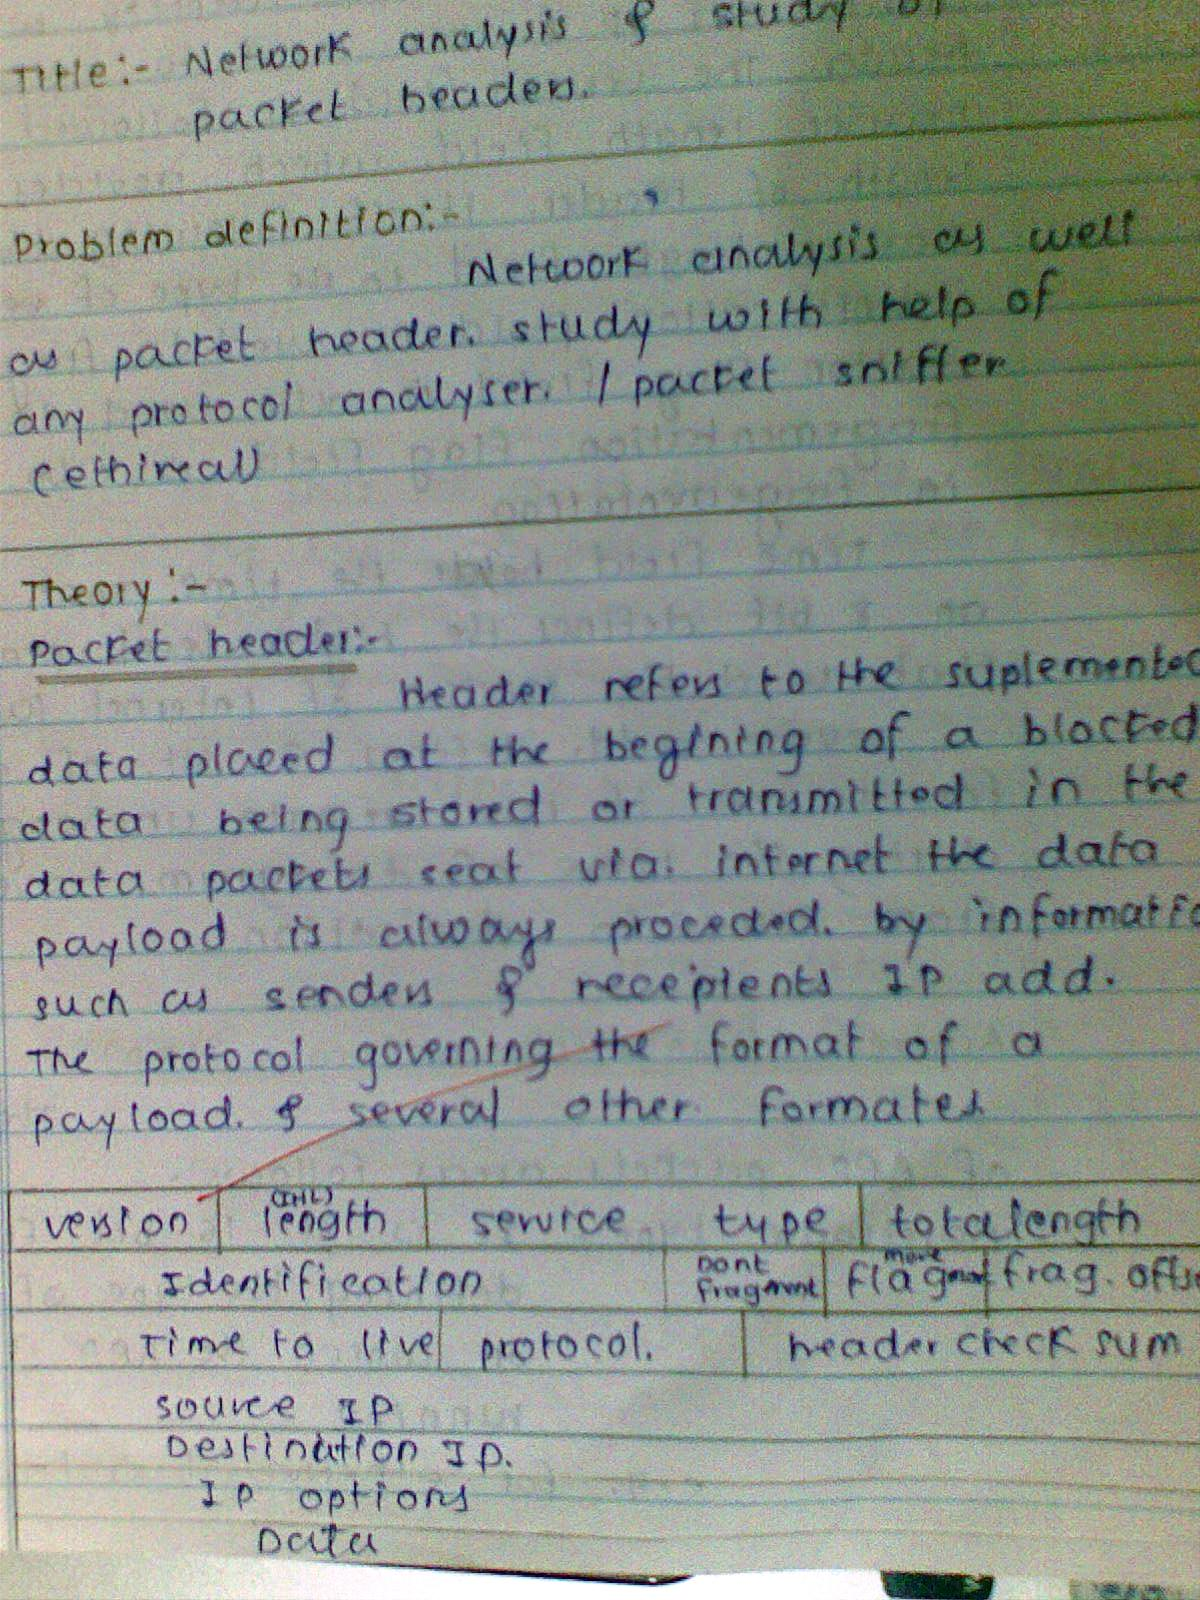 Title:- Network analysis & study of
packet headers.
Problem definition:-
Network analysis as well
as packet header. study with help of
any protocol analyser. / packet sniffer
(ethireal)
Theory:-
Packet header:-
Header refers to the suplemented
data placed at the begining of a blocked
data being stored or transmitted in the
data packets seat via. internet the data
payload is always proceded. by informatio
such as senders & recepients IP add.
The protocol governing the format of a
payload. & several other formates
version (IHL) length service type totalength
Identification Dont fragment more flagment frag. offs
Time to live protocol. header check sum
source IP
Destination IP.
IP options
Data